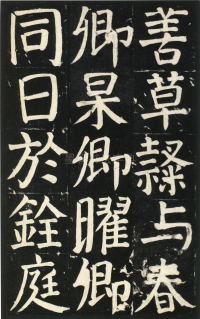 善草隸与春
卿杲卿曜卿
同日於銓庭